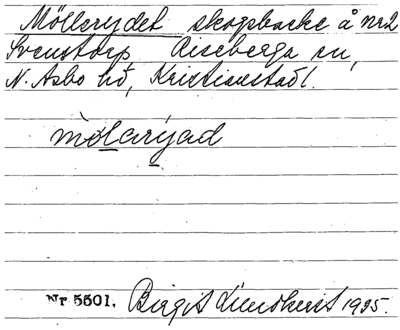 Möllerydet skogsbacke å nr 2
Svenstorp, Riseberga sn,
N. Åsbo hd, Kristianstads l.
mölarýad
Nr 5501. Birgit Lundkvist 1935.